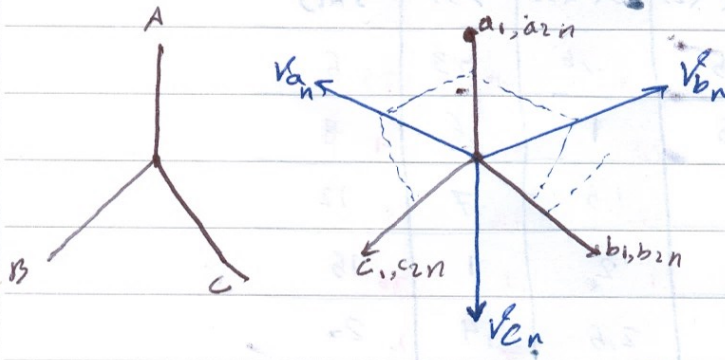 A
a₁, a₂n
Vaₙ
Vbₙ
B
C
c₁, c₂n
b₁, b₂n
Vcₙ